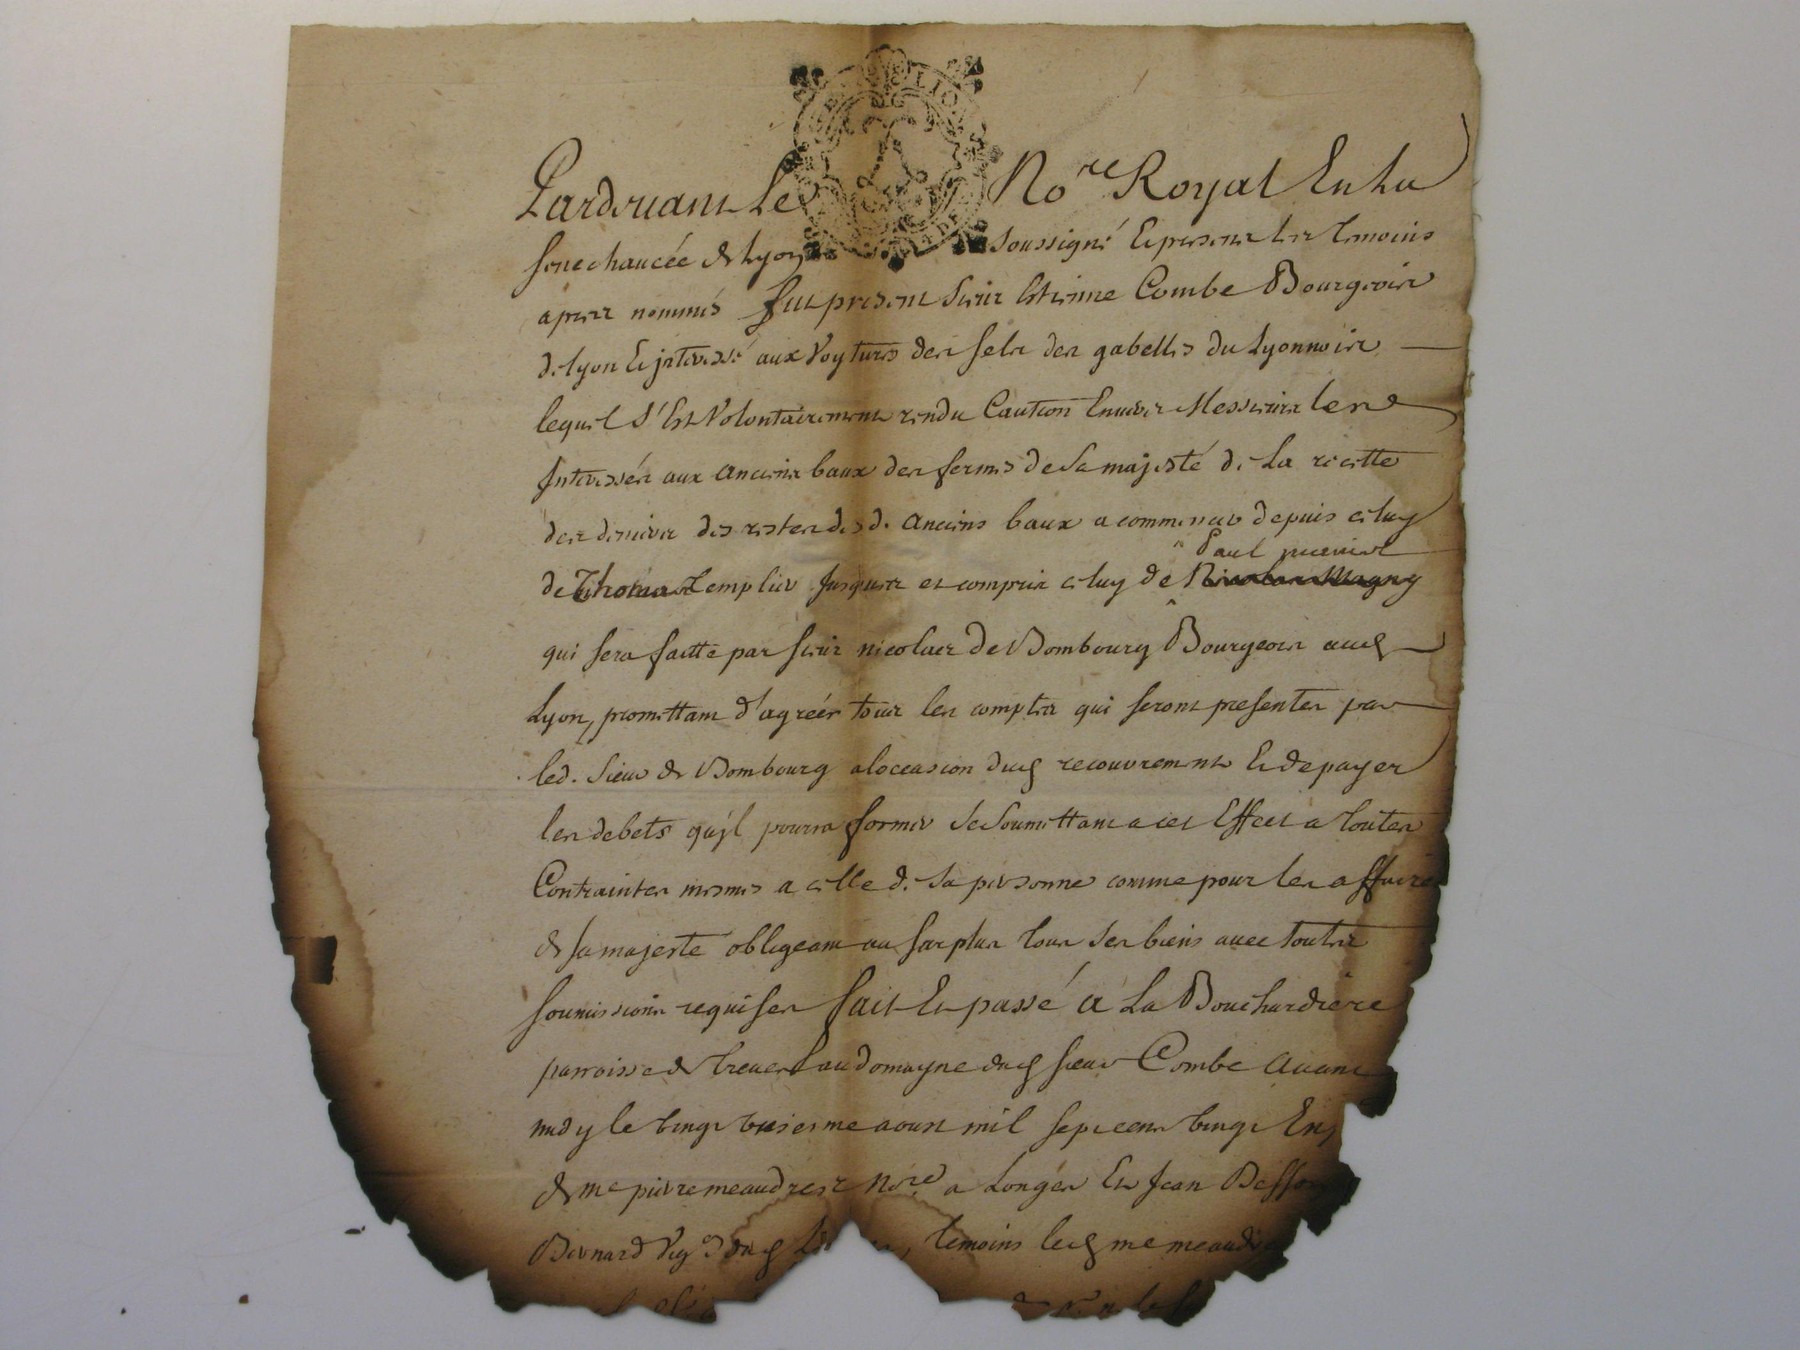 Pardevant Le No.re Royal En La
senechaucée de Lyon soussigné Et presens Les Temoins
apres nommés fut present Sieur Estienne Combe Bourgeois
de lyon Et jnteressé aux Voytures des sels des gabelles du Lyonnois
lequel s'Est Volontairement rendu Caution Envers Messieurs les
Jnteressés aux anciens baux des fermes de Sa majesté de La recette
des deniers des restes desd. anciens baux a commencer depuis celuy
Paul
de Thomas Templier Jusques et compris celuy de
qui sera faitte par sieur nicolas de Bombourg Bourgeois aud
Lyon, promettant d'agréer tous les comptes qui seront presentes par
led. Sieur de Bombourg aloccasion dud recouvrement Et de payer
les debets qu'jl pourra former se soumettant a cet Effect a toutes
Contraintes mesmes a celle de sa personne comme pour les affaire
de sa majesté obligeant au surplus tous ses biens avec toutes
soumissions requises fait Et passé a La Bouchardière
parroisse de Treves au domayne dud sieur Combe avant
midy le vingt troisieme aoust mil sept cens vingt
de me pierre meaudres No.re a Longes Et Jean
Bernard dud temoins led me